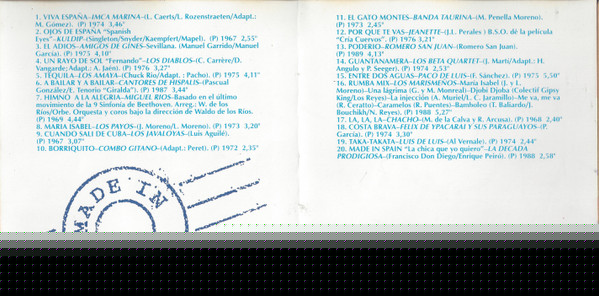 1. VIVA ESPAÑA-IMCA MARINA-(L. Caerts/L. Rozenstraeten/Adapt.:
M. Gómez). (P) 1974 3,46"
2. OJOS DE ESPAÑA "Spanish
Eyes"-KULDIP-(Singleton/Snyder/Kaempfert/Mapel). (P) 1967 2,55"
3. EL ADIOS-AMIGOS DE GINES-Sevillana. (Manuel Garrido/Manuel
García). (P) 1975 4,10"
4. UN RAYO DE SOL "Fernando"-LOS DIABLOS-(C. Carrère/D.
Vangarde; Adapt.: A. Jaén). (P) 1976 3,27"
5. TEQUILA-LOS AMAYA-(Chuck Río/Adapt. : Pacho). (P) 1975 4,11"
6. A BAILAR Y A BAILAR-CANTORES DE HISPALIS-(Pascual
González/E. Tenorio "Giralda"). (P) 1987 3,44"
7. HIMNO A LA ALEGRIA-MIGUEL RIOS-Basado en el último
movimiento de la 9 Sinfonía de Beethoven. Arreg.: W. de los
Ríos/Orbe. Orquesta y coros bajo la dirección de Waldo de los Ríos.
(P) 1969 4,44"
8. MARIA ISABEL-LOS PAYOS-(J. Moreno/L. Moreno). (P) 1973 3,20"
9. CUANDO SALI DE CUBA-LOS JAVALOYAS-(Luis Aguilé).
(P) 1967 3,07"
10. BORRIQUITO-COMBO GITANO-(Adapt.: Peret). (P) 1972 2,35"
MADE IN
11. EL GATO MONTES-BANDA TAURINA-(M. Penella Moreno).
(P) 1973 2,45"
12. POR QUE TE VAS-JEANETTE-(J.L. Perales) B.S.O. dè la película
"Cría Cuervos". (P) 1976 3,21"
13. PODERIO-ROMERO SAN JUAN-(Romero San Juan).
(P) 1989 4,13"
14. GUANTANAMERA-LOS BETA QUARTET-(J. Martí/Adapt.: H.
Angulo y P. Seeger). (P) 1974 2,53"
15. ENTRE DOS AGUAS-PACO DE LUCIA-(F. Sánchez). (P) 1975 5,50"
16. RUMBA MIX-LOS MARISMEÑOS-María Isabel (J. y L.
Moreno)-Una lágrima (G. y M. Monreal)-Djobi Djoba (Colectif Gipsy
King/Los Reyes)-La injección (A. Muriel/L. C. Jaramillo)-Me va, me va
(R. Ceratto)-Caramelos (R. Puentes)-Bamboleo (T. Baliardu/J.
Bouchikh/N. Reyes). (P) 1988 5,27"
17. LA, LA, LA-CHACHO-(M. de la Calva y R. Arcusa). (P) 1968 2,40"
18. COSTA BRAVA-FELIX DE YPACARAI Y SUS PARAGUAYOS-(P.
García). (P) 1974 3,30"
19. TAKA-TAKATA-LUIS DE LUIS-(Al Vernale). (P) 1974 2,44"
20. MADE IN SPAIN "La chica que yo quiero"-LA DECADA
PRODIGIOSA-(Francisco Don Diego/Enrique Peiró). (P) 1988 2,58"